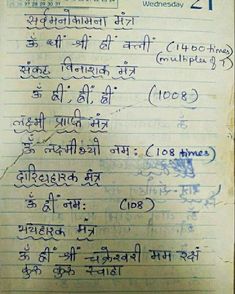 Wednesday 21
सर्वमनोकामना मंत्र
ॐ श्रीं ह्रीं क्लीं (1400 times)
(multiples of 7)
संकट विनाशक मंत्र
ॐ ह्रीं, ह्रीं, ह्रीं (1008)
लक्ष्मी प्राप्ति मंत्र
ॐ नमः (108 times)
दारिद्रहारक मंत्र
ॐ ह्रीं नमः (108)
भयहारक मंत्र
ॐ ह्रीं श्रीं चक्रेश्वरी मम रक्षां
कुरु कुरु स्वाहा